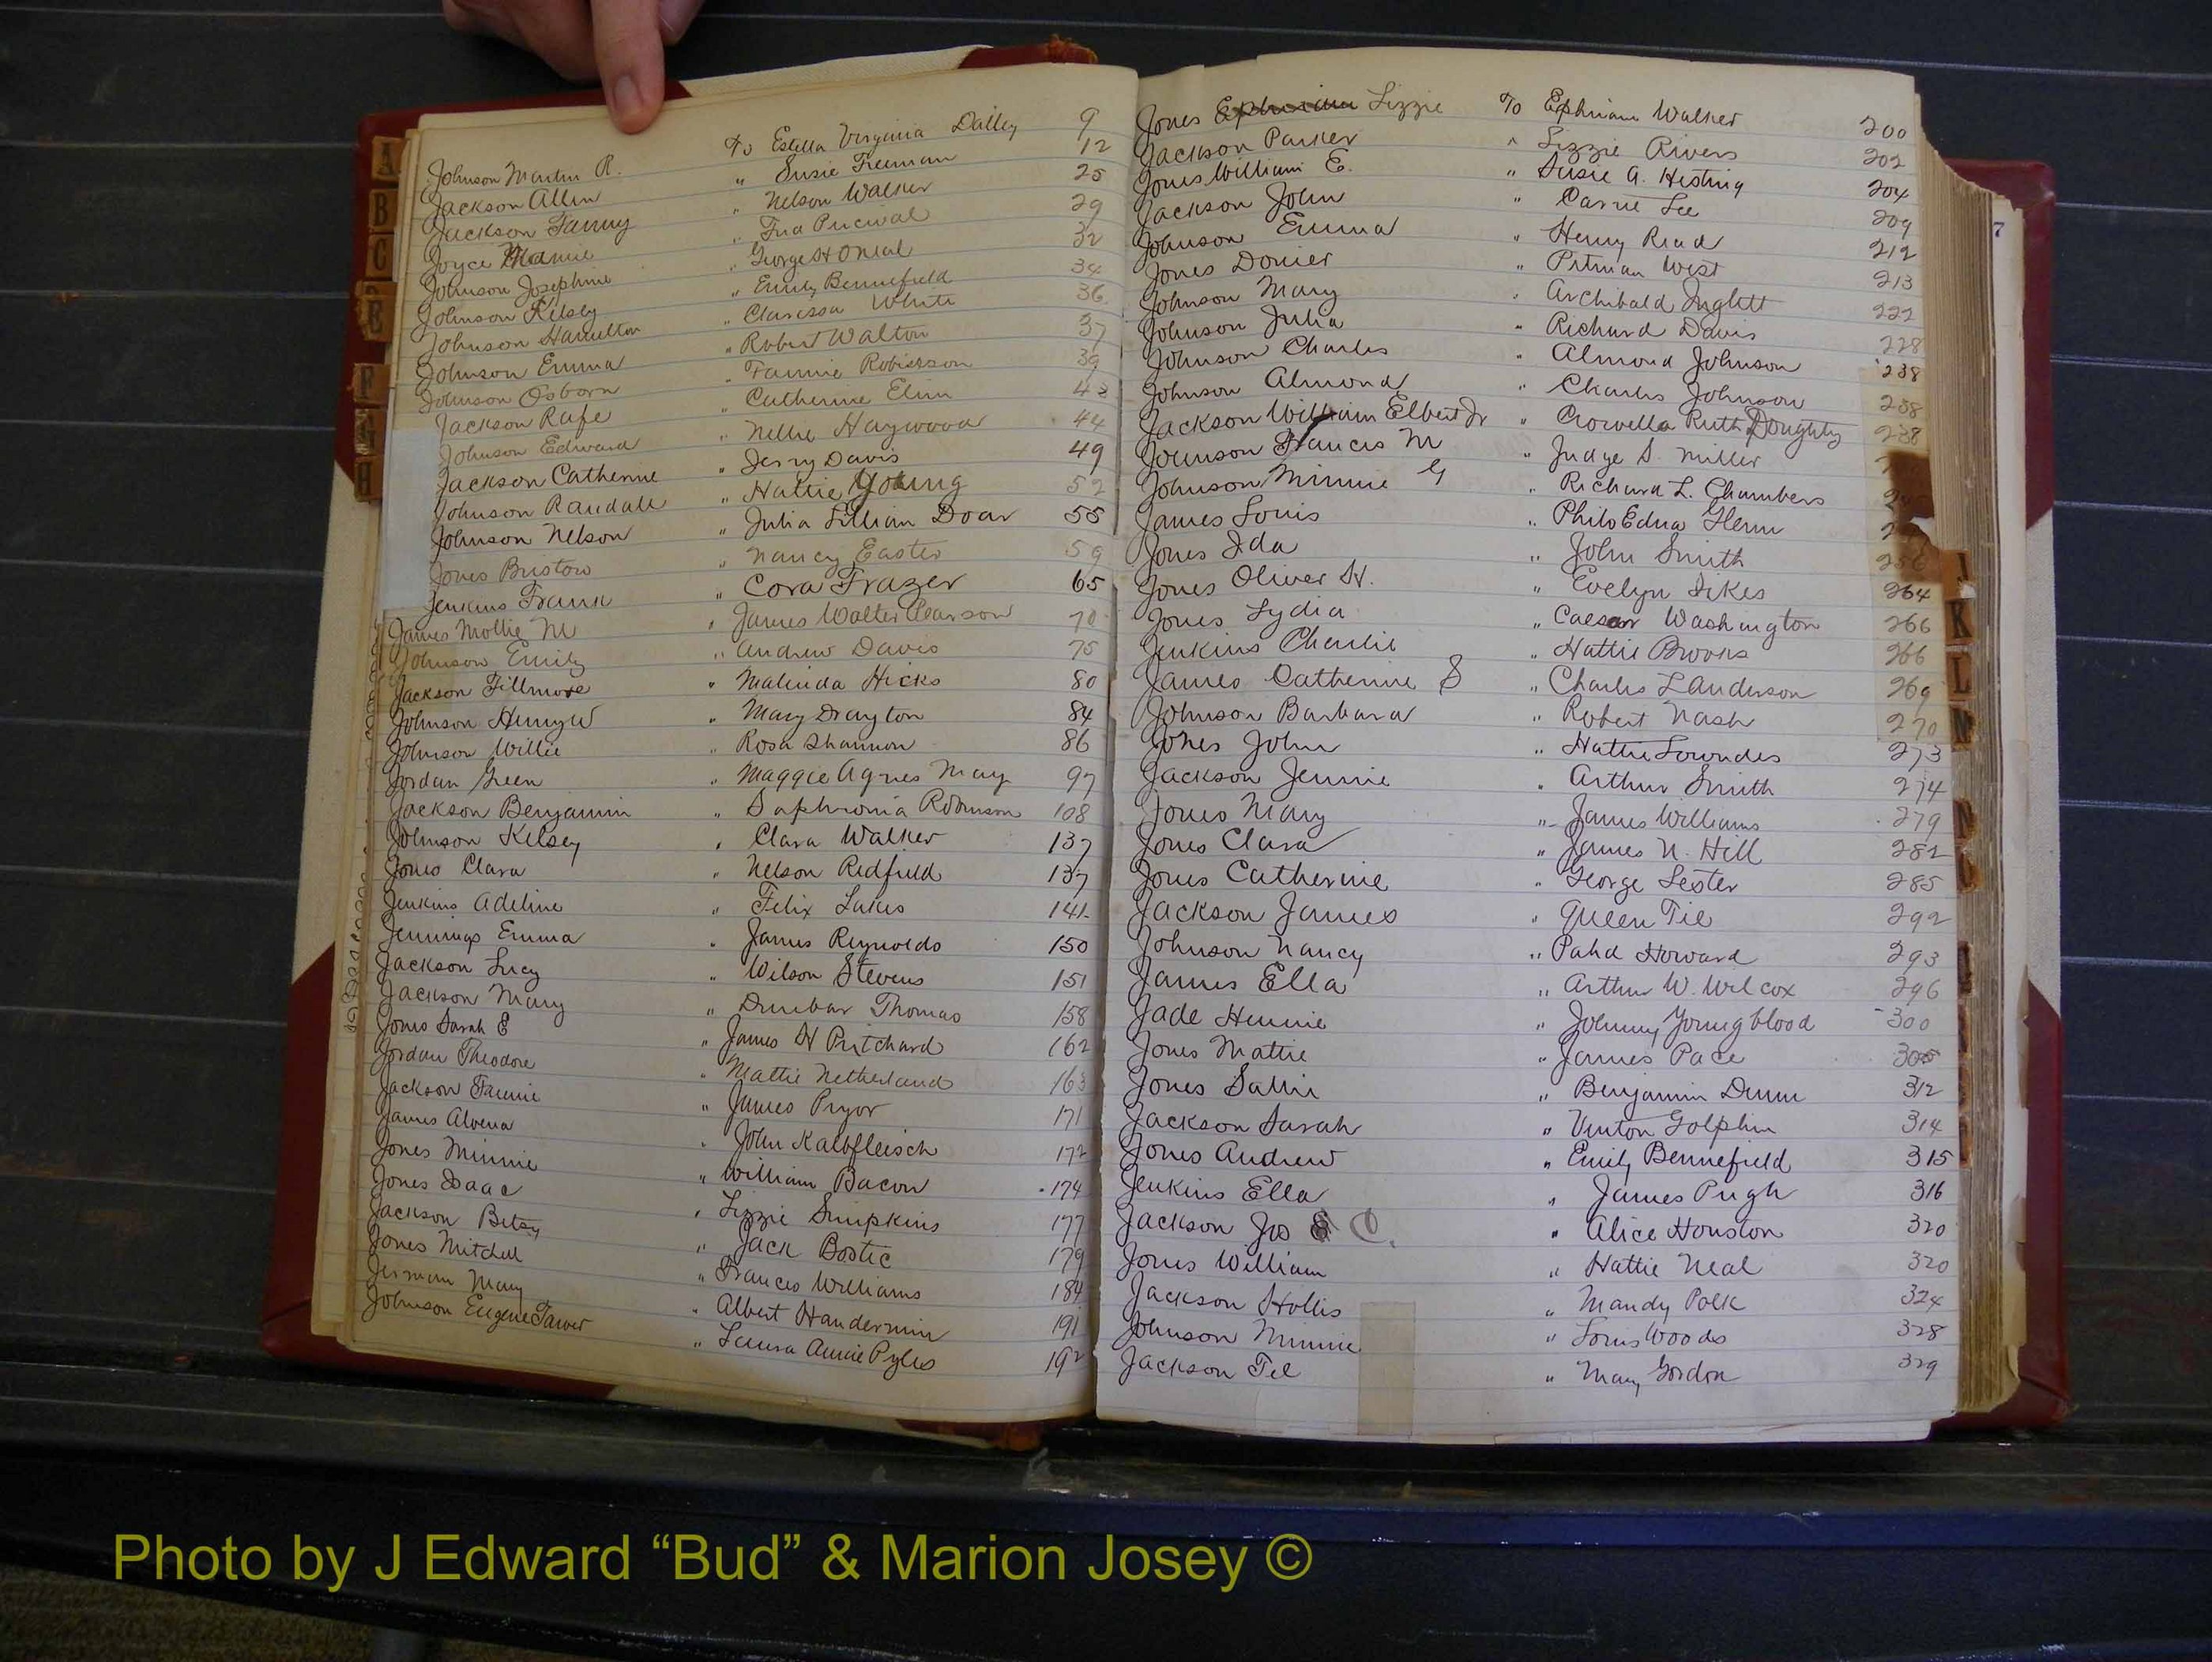 A
B
C
E
F
G
H
Johnson Martin R. To Estella Virginia Dalley 9
Jackson Allen " Susie Freeman 12
Jackson Fanny " Nelson Walker 25
Joyce Mamie " Percival 29
Johnson Josephine " George H ONeal 32
Johnson Kelsey " Emily Bennefield 34
Johnson Hamilton " Clarissa White 36
Johnson Emma " Robert Walton 37
Johnson Osborn " Fannie Robisson 39
Jackson Rafe " Catherine Elim 43
Johnson Edward " Nellie Haywood 44
Jackson Catherine " Jerry Davis 49
Johnson Randall " Hattie Young 52
Johnson Nelson " Julia Lillian Doar 55
Jones Bristow " Nancy Easter 59
Jenkins Frank " Cora Frazer 65
James Mollie M " James Walter Pearson 70
Johnson Emily " Andrew Davis 75
Jackson Fillmore " Malinda Hicks 80
Johnson Henry W " Mary Drayton 84
Johnson Willie " Rosa Shannon 86
Jordan Green " Maggie Agnes May 97
Jackson Benjamin " Saphronia Robinson 108
Johnson Kelsey " Clara Walker 137
Jones Clara " Nelson Redfield 137
Jenkins Adeline " Felix Lukes 141
Jennings Emma " James Reynolds 150
Jackson Lucy " Wilson Stevens 151
Jackson Mary " Dunbar Thomas 158
Jones Sarah E " James H Pritchard 162
Jordan Theodore " Mattie Netherland 163
Jackson Fannie " James Pryor 171
James Alvena " John Kalbfleisch 172
Jones Minnie " William Bacon 174
Jones Isaac " Lizzie Simpkins 177
Jackson Betsy " Jack Bostic 179
Jones Mitchel " Frances Williams 184
Jerman Mary " Albert Handermin 191
Johnson Eugene " Laura Annie Pyles 192
Jones Ephriam Lizzie To Ephriam Walker 200
Jackson Parker " Lizzie Rivers 202
Jones William E. " Susie A. Hesting 204
Jackson John " Carrie Lee 209
Johnson Emma " Henry Read 212
Jones Donier " Pitman West 213
Johnson Mary " Archibald Inglett 222
Johnson Julia " Richard Davis 228
Johnson Charles " Almond Johnson 238
Johnson Almond " Charles Johnson 238
Jackson William Elbert Jr " Crowella Ruth Doughty 238
Johnson Francis M " Judge S. Miller
Johnson Minnie G " Richard L. Chambers
James Louis " Philo Edna Glenn
Jones Ida " John Smith 256
Jones Oliver H. " Evelyn Sikes 264
Jones Lydia " Caesar Washington 266
Jenkins Charlie " Hattie Brooks 266
James Catherine S " Charles L Anderson 269
Johnson Barbara " Robert Nash 270
Jones John " Hattie Lowndes 273
Jackson Jennie " Arthur Smith 274
Jones Mary " James Williams 279
Jones Clara " James N. Hill 282
Jones Catherine " George Lester 285
Jackson James " Queen Tie 292
Johnson Nancy " Pahd Howard 293
James Ella " Arthur W. Wilcox 296
Jade Hennie " Johnny Youngblood 300
Jones Mattie " James Pace 305
Jones Sallie " Benjamin Dunn 312
Jackson Sarah " Vinton Golphin 314
Jones Andrew " Emily Bennefield 315
Jenkins Ella " James Pugh 316
Jackson Jos C. " Alice Houston 320
Jones William " Hattie Neal 320
Jackson Hollis " Mandy Polk 324
Johnson Minnie " Louis Woods 328
Jackson Tel " Mary Gordon 329
7
J
K
L
N
Photo by J Edward “Bud” & Marion Josey ©